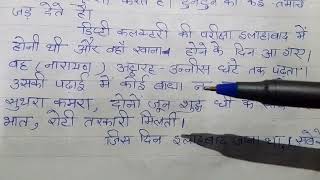 जड़ देते हैं।
डिप्टी कलक्टरी की परीक्षा इलाहाबाद में
होनी थी और वहाँ रवाना होने के दिन आ गए।
वह (नारायण) अट्ठारह-उन्नीस घंटे तक पढ़ता।
उसकी पढ़ाई में कोई बाधा न
सुथरा कमरा, दोनों जून शुद्ध घी के
भात, रोटी तरकारी मिलती।
जिस दिन इलाहाबाद जाना था,